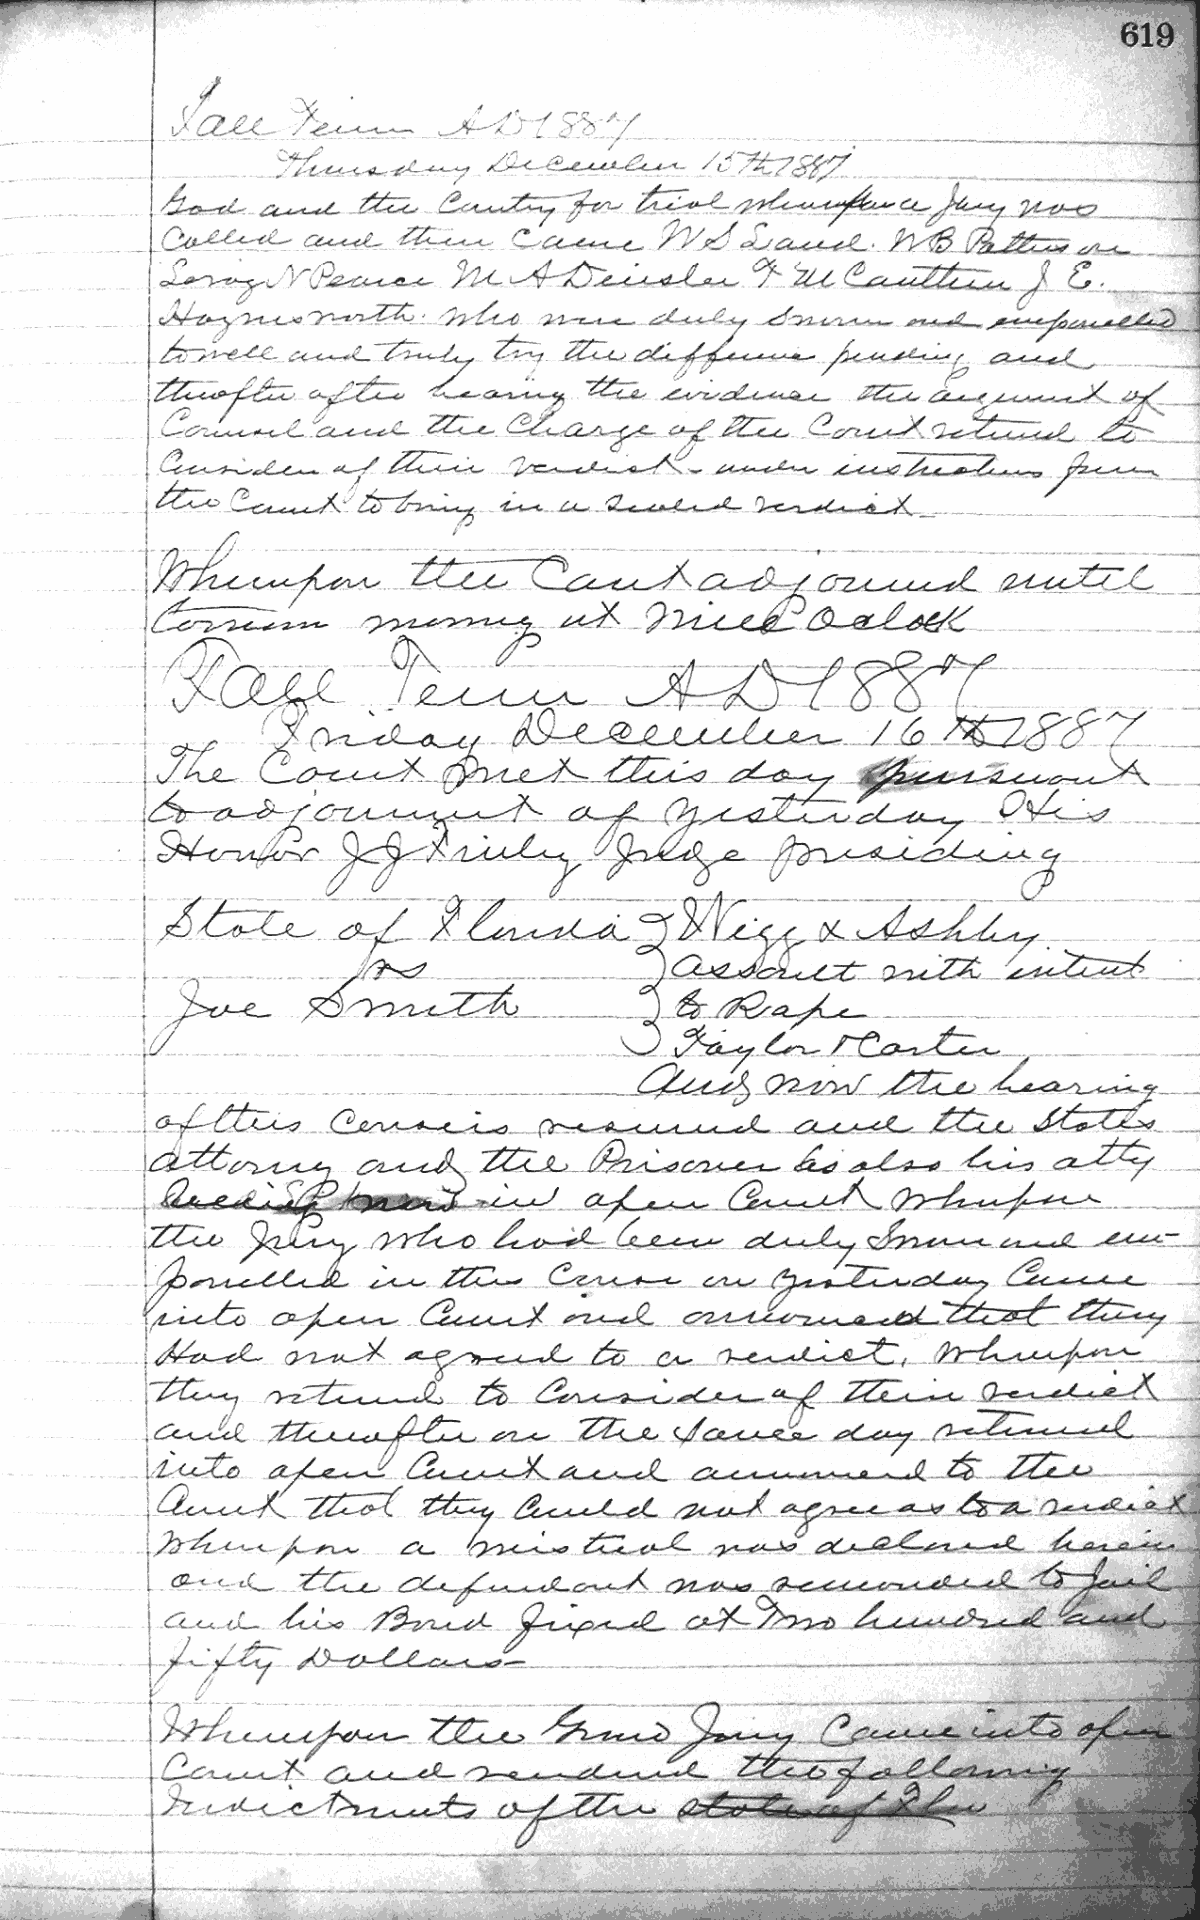 619
Fall Term AD 1887
Thursday December 15th 1887
God and the Contry for trial whereupon a Jury was
Called and then Came W S Land. W B Patterson
N Pearce M A Deusler F M Cauthen J E.
Haynesworth. who were duly sworn and empanelled
to well and truly try the difference pending and
thereafter after hearing the evidence the argument of
Counsel and the Charge of the Court retired to
Consider of their verdict - under instructions from
the Court to bring in a sealed verdict -
Whereupon the Court adjourned until
morning at Nine Oclock
Fall Term AD 1887
Friday December 16th 1887
The Court met this day pursuant
to adjournment of yesterday His
Honor J J Finley Judge presiding
State of Florida Wigg & Ashby
vs assault with intent
Joe Smith to Rape
Taylor & Carter
And now the hearing
of this Cause is resumed and the States
attorney and the Prisoner as also his atty
in open Court whereupon
the Jury who had been duly Sworn and em-
panelled in this Cause on yesterday Came
into open Court and announced that they
Had not agreed to a verdict, whereupon
they retired to Consider of their verdict
and thereafter on the same day returned
into open Court and announced to the
Court that they Could not agree as to a verdict
whereupon a mistrial was declared herein
and the defendant was remanded to Jail
and his Bond fixed at Two hundred and
fifty Dollars -
Whereupon the Grand Jury Came into open
Court and rendered the following
Indictments of the State of Flo